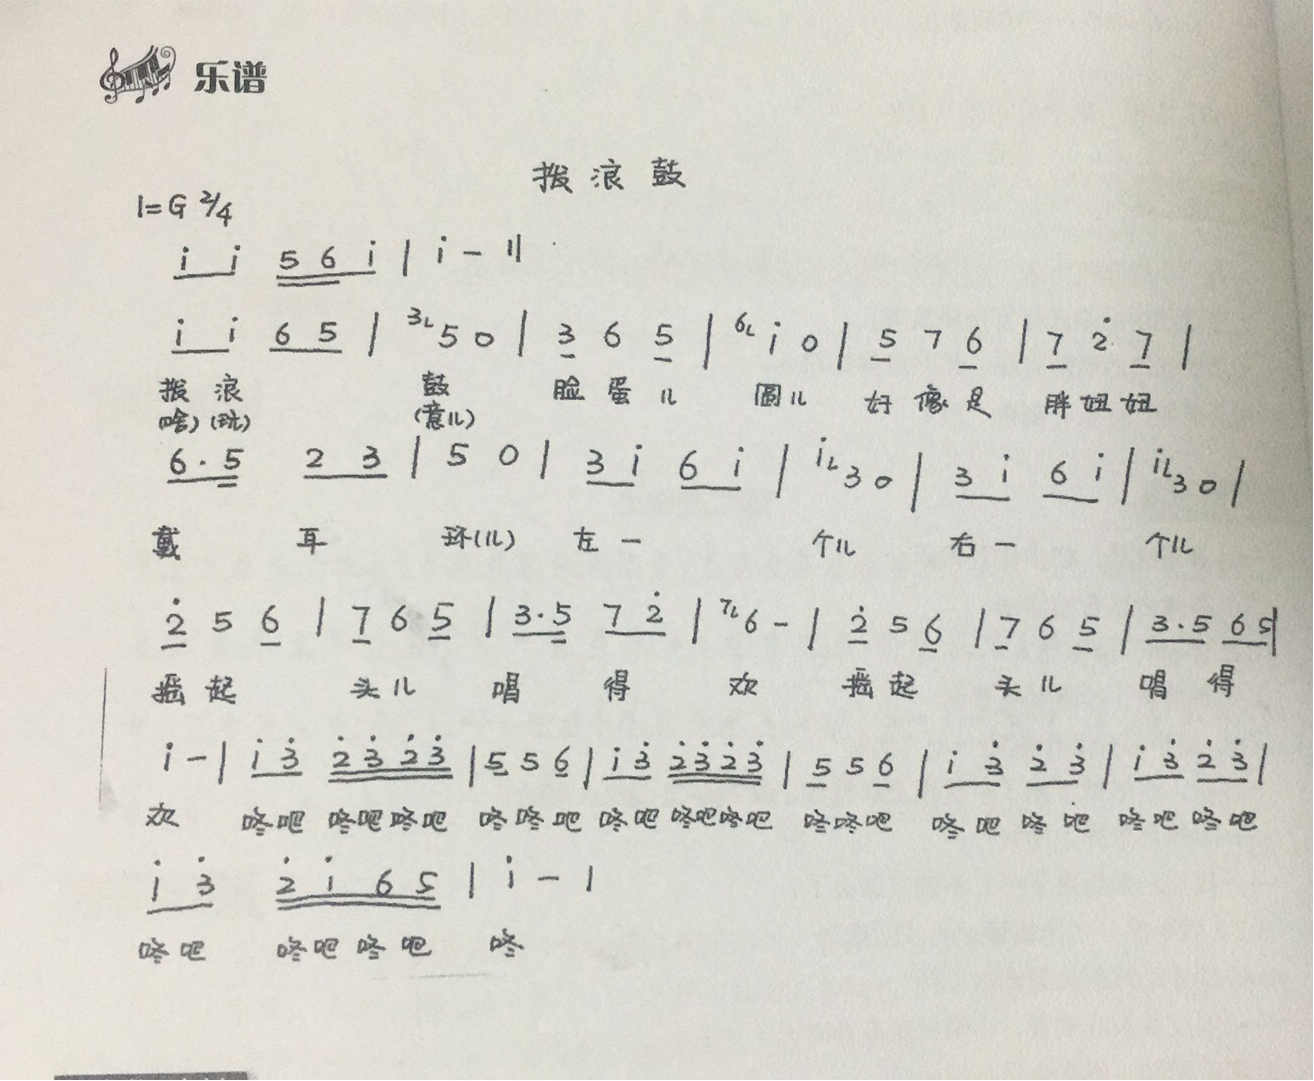 乐谱
拨浪鼓
1=G 2/4
i i 5 6 i | i - ||
i i 6 5 | 3 5 0 | 3 6 5 | 6 i 0 | 5 7 6 | 7 2̇ 7 |
拨 浪 鼓 脸 蛋 儿 圆儿 好 像 是 胖 妞 妞
(啥) (玩) (意儿)
6 · 5 2 3 | 5 0 | 3 i 6 i | i 3 0 | 3 i 6 i | i 3 0 |
戴 耳 环(儿) 左 一 个儿 右 一 个儿
2̇ 5 6 | 7 6 5 | 3 · 5 7 2̇ | 7 6 - | 2̇ 5 6 | 7 6 5 | 3 · 5 6 5 |
摇 起 头 儿 唱 得 欢 摇 起 头 儿 唱 得
i - | i 3̇ 2̇ 3̇ 2̇ 3̇ | 5 5 6 | i 3̇ 2̇ 3̇ 2̇ 3̇ | 5 5 6 | i 3̇ 2̇ 3̇ | i 3̇ 2̇ 3̇ |
欢 咚吧 咚吧咚吧 咚咚吧 咚吧 咚吧咚吧 咚咚吧 咚吧 咚吧 咚吧 咚吧
i 3̇ 2̇ i 6 5 | i - |
咚吧 咚吧咚吧 咚